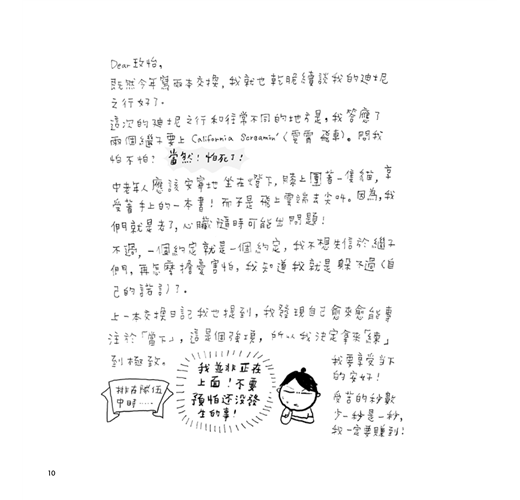 Dear 玫怡,
既然今年寫兩本交換,我就也乾脆續談我的迪士尼
之行好了。
這次的迪士尼之行和往常不同的地方是,我答應了
兩個繼子要上 California Screamin'(雲霄飛車)。問我
怕不怕? 當然!怕死了!
中老年人應該安實地坐在燈下,膝上圍著一隻貓,享
受著手上的一本書!而不是飛上雲端去尖叫。因為,我
們就是老了,心臟隨時可能出問題!
不過,一個約定就是一個約定,我不想失信於繼子
們,再怎麼擔憂害怕,我知道我就是躲不過(自
己的諾言)了。
上一本交換日記我也提到,我發現自己愈來愈能專
注於「當下」,這是個強項,所以我決定拿來「練」
到極致。
排在隊伍
中時……
我並非正在
上面!不要
預怕還沒發
生的事!
我要享受當下
的安好!
受苦的秒數
少一秒是一秒,
我一定要賺到!
10